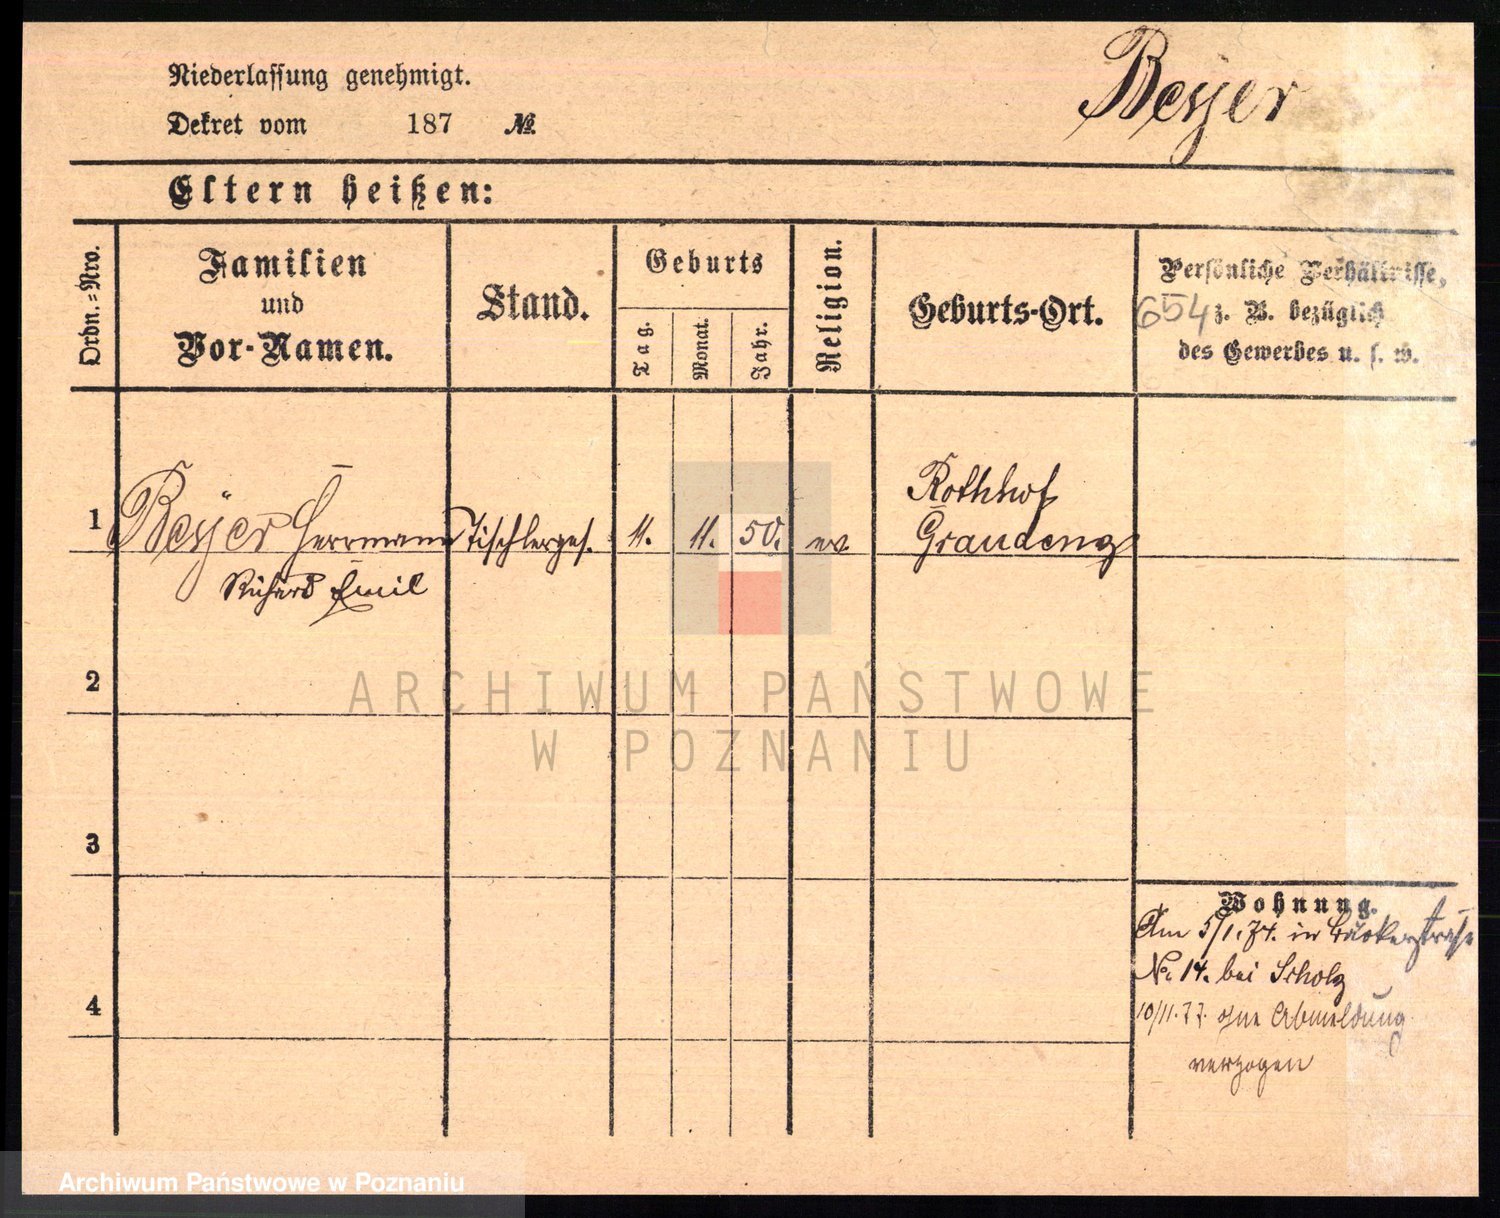 Beyer
Niederlassung genehmigt.
Dekret vom 187 №
Eltern heißen:
Ordn.=Nro.
Familien
und
Vor-Namen.
Stand.
Geburts
Tag.
Monat.
Jahr.
Religion.
Geburts-Ort.
Persönliche Verhältnisse,
654 z. B. bezüglich
des Gewerbes u. s. w.
Rothhof
1 Beÿer Herrmann Tischlerges. 11. 11. 50. ev. Graudenz
Richard Emil
2
3
4
Wohnung.
Am 5/1.74. in Bäckerstraße
No 14. bei Scholz
10/11.77. ohne Abmeldung
verzogen
ARCHIWUM PAŃSTWOWE
W POZNANIU
Archiwum Państwowe w Poznaniu